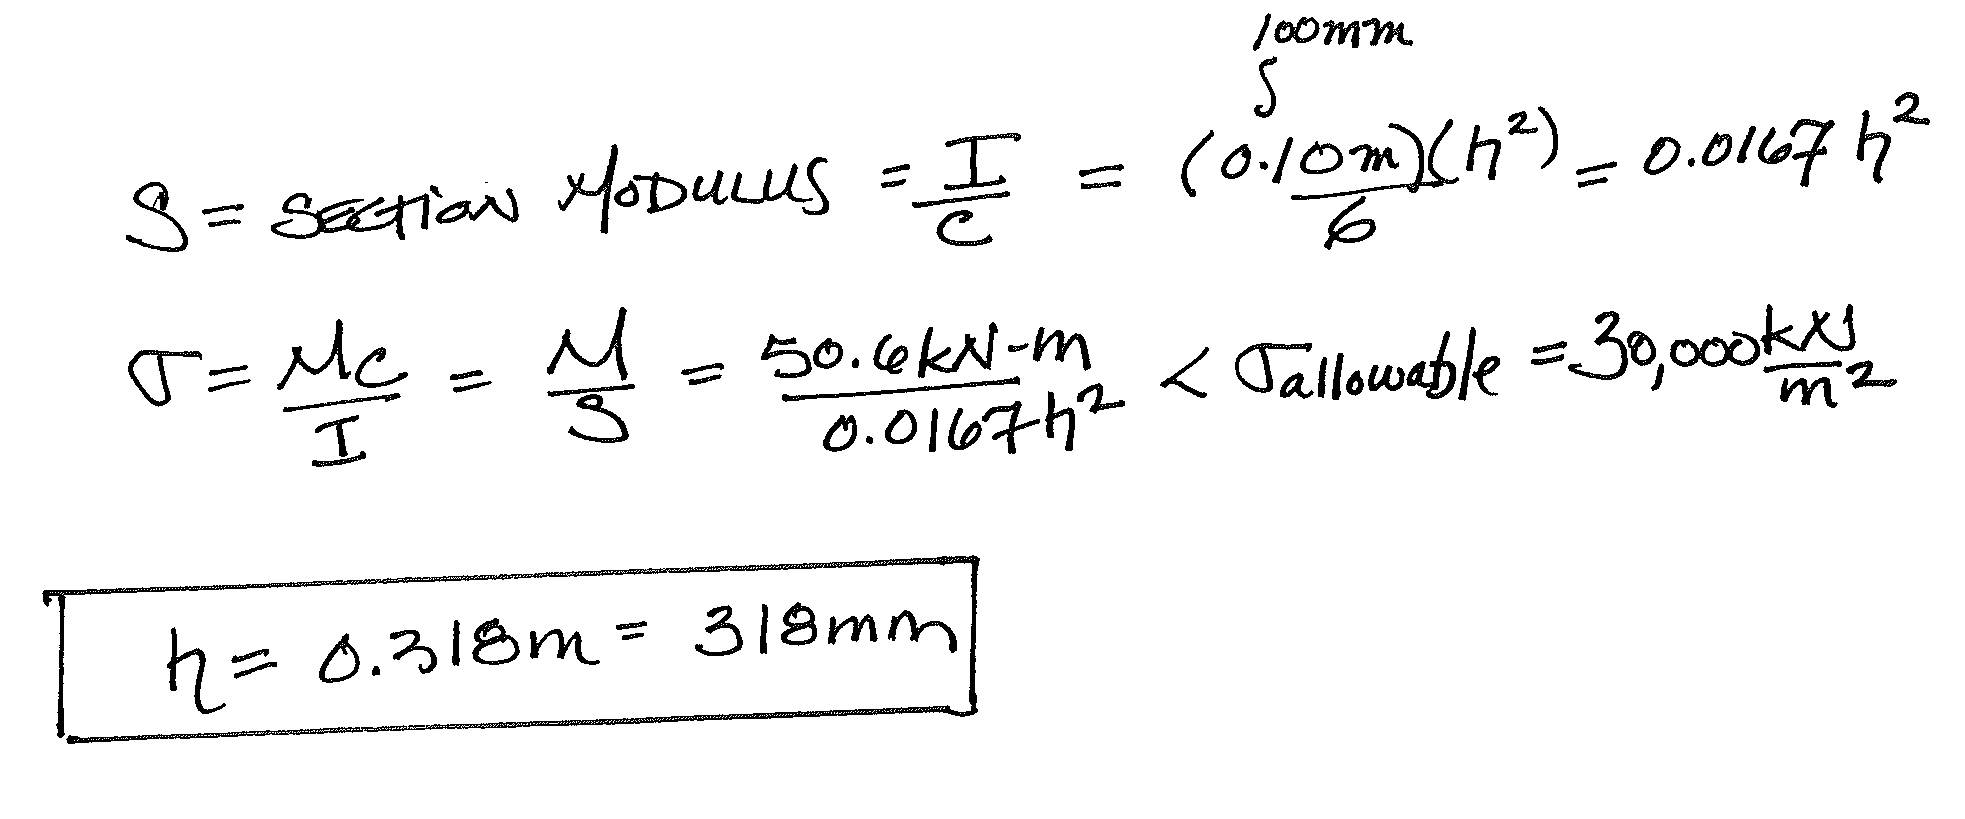 100mm
S = SECTION MODULUS = I/C = (0.10m)(h²)/6 = 0.0167 h²
σ = Mc/I = M/S = 50.6kN-m/0.0167h² < σallowable = 30,000 kN/m²
h = 0.318m = 318mm